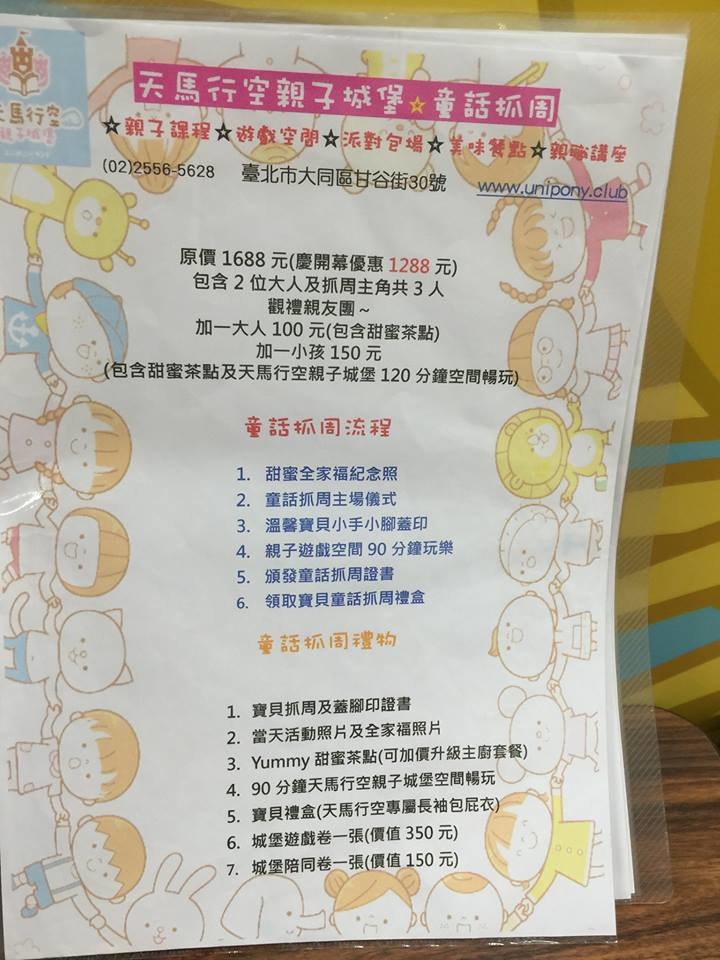 天馬行空
親子城堡
天馬行空親子城堡☆童話抓周
☆親子課程☆遊戲空間☆派對包場☆美味餐點☆親職講座
(02)2556-5628 臺北市大同區甘谷街30號 www.unipony.club
原價 1688 元(慶開幕優惠 1288 元)
包含 2 位大人及抓周主角共 3 人
觀禮親友團～
加一大人 100 元(包含甜蜜茶點)
加一小孩 150 元
(包含甜蜜茶點及天馬行空親子城堡 120 分鐘空間暢玩)
童話抓周流程
1. 甜蜜全家福紀念照
2. 童話抓周主場儀式
3. 溫馨寶貝小手小腳蓋印
4. 親子遊戲空間 90 分鐘玩樂
5. 頒發童話抓周證書
6. 領取寶貝童話抓周禮盒
童話抓周禮物
1. 寶貝抓周及蓋腳印證書
2. 當天活動照片及全家福照片
3. Yummy 甜蜜茶點(可加價升級主廚套餐)
4. 90 分鐘天馬行空親子城堡空間暢玩
5. 寶貝禮盒(天馬行空專屬長袖包屁衣)
6. 城堡遊戲卷一張(價值 350 元)
7. 城堡陪同卷一張(價值 150 元)